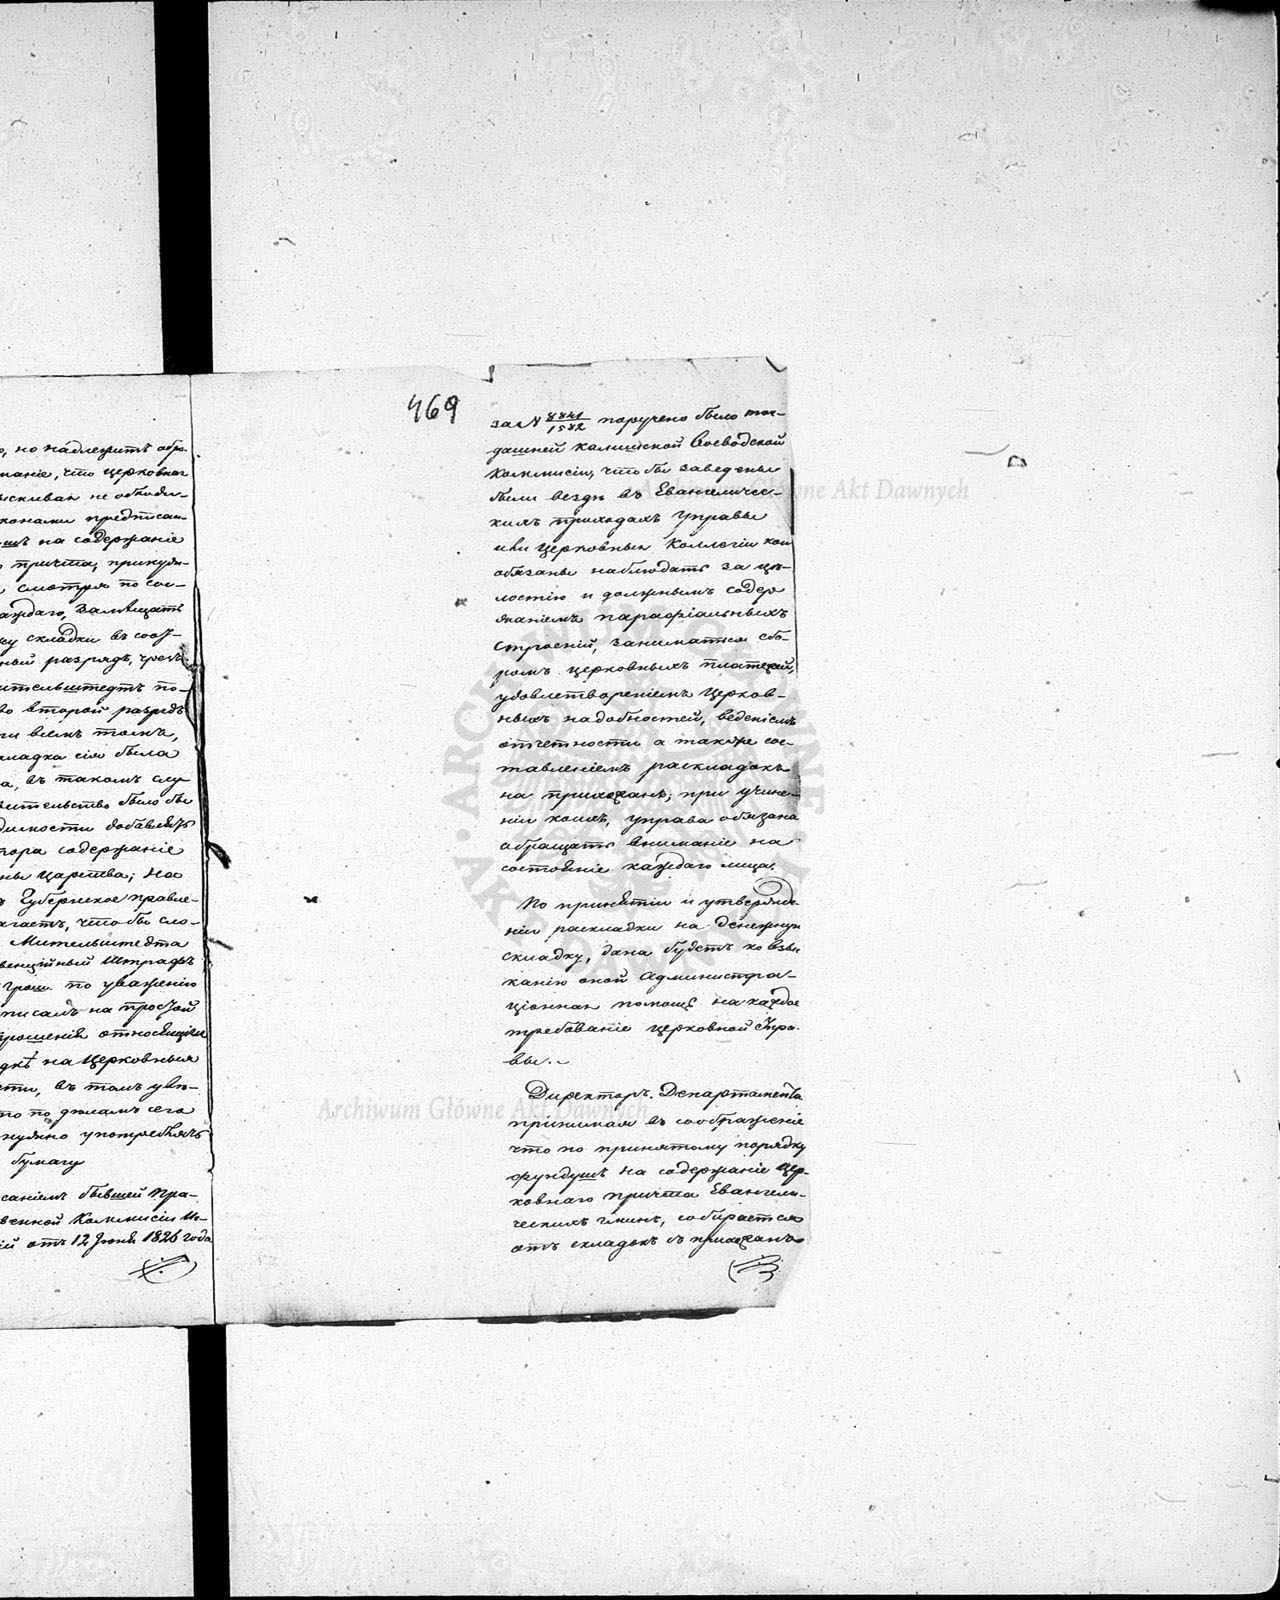 , но надлежитъ обра-
маніе, что церковная
ыскивая не обходи-
конами предписан-
на содержаніе
причта, принуди-
смотря по сос-
аждаго, Замѣщать
ку складки въ
ный разрядъ,
ительштедтъ по-
во второй разрядъ
ри всемъ томъ,
складка сія была
а, въ такомъ слу
вительство было бы
димости добавлять
тора содержаніе
ны царства; но
Губернское правле-
агаетъ, что бы
Мительштедта
венційный Штрафъ
Грош. по уваженію
писалъ на простой
прошенія относящіяся
на Церковныя
сти, въ томъ увѣ-
то по дѣламъ сего
нужно употреблять
бумагу
саніемъ бывшей Пра-
венной Коммисіи
ій отъ 12 Іюня 1826 года
469
за N 8841/1582 поручено было тог-
дашней Калишской Воеводской
Коммисіи, что бы заведены
были вездѣ въ Евангеличес-
кихъ приходахъ Управы
или Церковныя Коллегіи кои
обязаны наблюдать за цѣ-
лостію и должнымъ содер
жаніемъ парафіальныхъ
строеній, заниматься сбо-
ромъ церковныхъ платежей,
удовлетвореніемъ Церков-
ныхъ надобностей, веденіемъ
отчетности а также сос-
тавленіемъ раскладокъ
на прихожанъ; при учине-
ніи коихъ, управа обязана
обращать вниманіе на
состояніе каждаго лица.
По принятіи и утвержде-
ніи раскладки на денежную
складку, дана будетъ ко взы
канію оной Администра-
ціонная помощь на каждое
требованіе церковной Упра-
вы.
Директоръ Департамента
принимая въ соображеніе
что по принятому порядку
фундушъ на содержаніе Цер-
ковнаго причта Евангели-
ческихъ гминъ, собирается
отъ складокъ съ прихожанъ